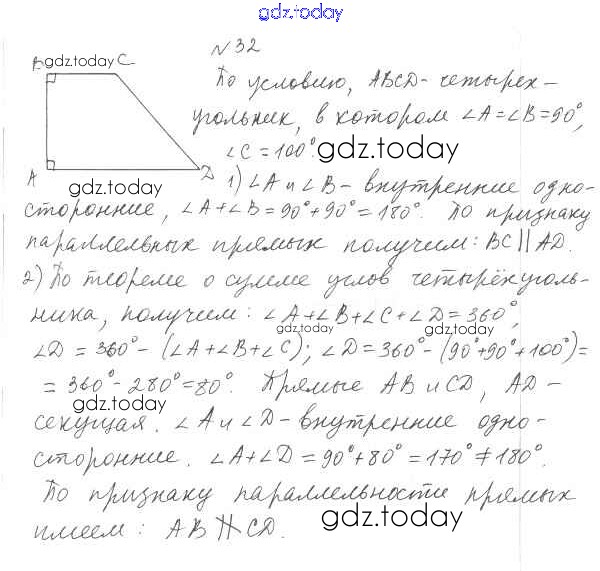 gdz.today
N 32
B gdz.today C
По условию, ABCD - четырёх-
угольник, в котором ∠A = ∠B = 90°,
∠C = 100° gdz.today
A gdz.today D
1) ∠A и ∠B - внутренние одно-
сторонние, ∠A + ∠B = 90° + 90° = 180°. По признаку
параллельных прямых получим: BC || AD.
2) По теореме о сумме углов четырёхуголь-
ника, получим: ∠A + ∠B + ∠C + ∠D = 360°,
gdz.today gdz.today
∠D = 360° - (∠A + ∠B + ∠C); ∠D = 360° - (90° + 90° + 100°) =
= 360° - 280° = 80°. Прямые AB и CD, AD -
gdz.today
секущая. ∠A и ∠D - внутренние одно-
сторонние. ∠A + ∠D = 90° + 80° = 170° ≠ 180°.
По признаку параллельности прямых
имеем: AB ∦ CD. gdz.today